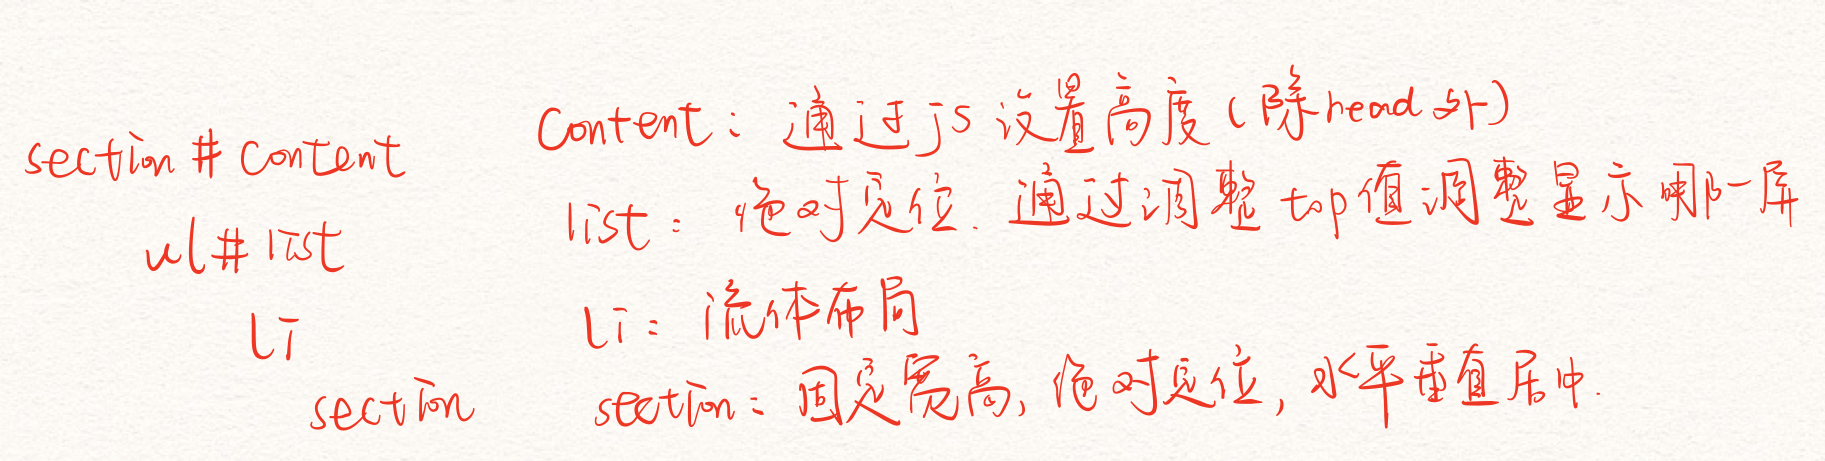 section # content
ul # list
Li
section
Content: 通过js设置高度(除head外)
list: 绝对定位. 通过调整top值调整显示哪一屏
Li: 流体布局
section: 固定宽高, 绝对定位, 水平垂直居中.